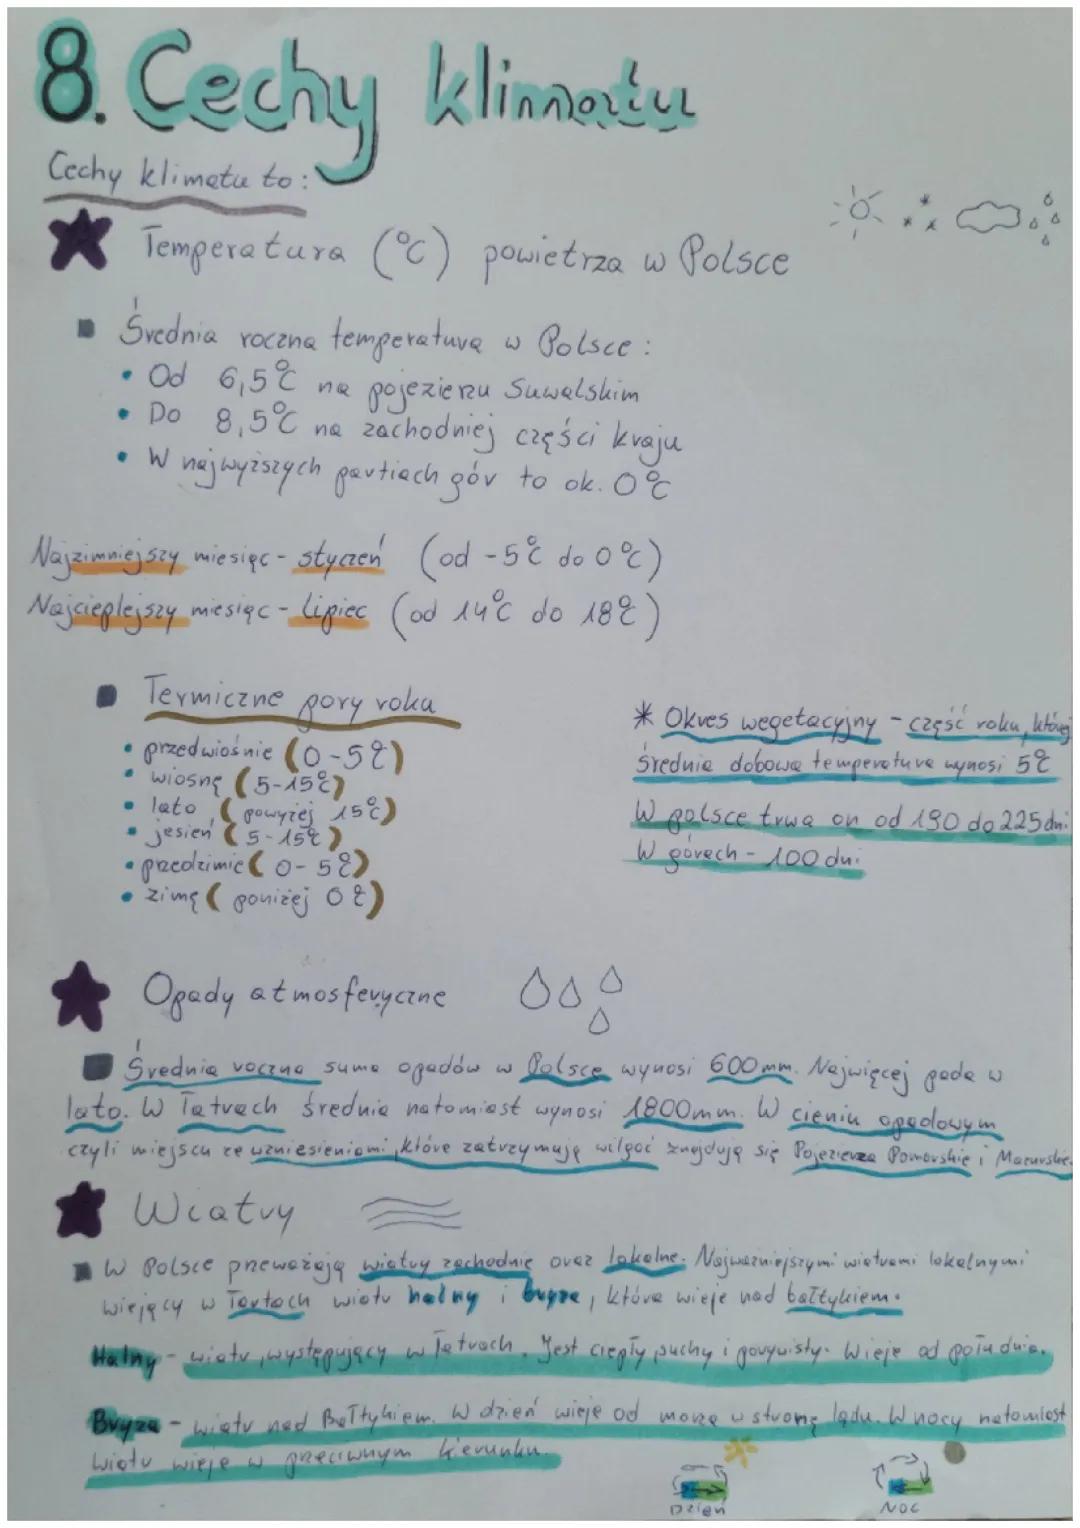 8. Cechy klimatu
Cechy klimatu to:
Temperatura (°C) powietrza w Polsce
Średnia roczna temperatura w Polsce:
• Od 6,5°C na pojezierzu Suwalskim
• Do 8,5°C na zachodniej części kraju
• W najwyższych partiach gór to ok. 0°C
Najzimniejszy miesiąc - styczeń (od -5°C do 0°C)
Najcieplejszy miesiąc - lipiec (od 14°C do 18°C)
Termiczne pory roku
• przedwiośnie (0-5°C)
• wiosnę (5-15°C)
• lato (powyżej 15°C)
• jesień (5-15°C)
• przedzimie (0-5°C)
• zimę (poniżej 0°C)
* Okres wegetacyjny - część roku, której
średnia dobowa temperatura wynosi 5°C
W polsce trwa on od 190 do 225 dni
W górach - 100 dni
Opady atmosferyczne
Średnia roczna suma opadów w Polsce wynosi 600mm. Najwięcej pada w
lato. W Tatrach średnia natomiast wynosi 1800mm. W cieniu opadowym
czyli miejscu ze wzniesieniami, które zatrzymują wilgoć znajdują się Pojezierza Pomorskie i Mazurskie.
Wiatry
W Polsce przeważają wiatry zachodnie oraz lokalne. Najważniejszymi wiatrami lokalnymi
wiejący w Tartach wiatr halny i bryza, która wieje nad bałtykiem.
Halny - wiatr, występujący w Tatrach. Jest ciepły, suchy i porywisty. Wieje od południa.
Bryza - wiatr nad Bałtykiem. W dzień wieje od morza w stronę lądu. W nocy natomiast
wiatr wieje w przeciwnym kierunku.
Dzień
Noc